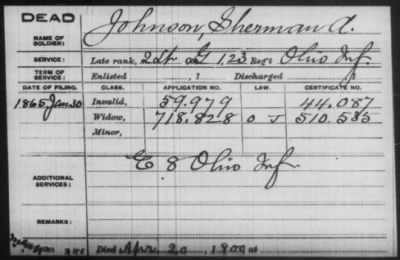 DEAD
NAME OF SOLDIER: Johnson, Sherman A.
SERVICE: Late rank, 2 Lt. G, 123 Reg't Ohio Inf.
TERM OF SERVICE: Enlisted , 1 Discharged , 1
DATE OF FILING. CLASS. APPLICATION NO. LAW. CERTIFICATE NO.
1865, Jan. 30 Invalid, 59.979 44.087
Widow, 718.828 O J 510.535
Minor,
ADDITIONAL SERVICES: E 8 Ohio Inf.
REMARKS:
Died Apr. 20, at